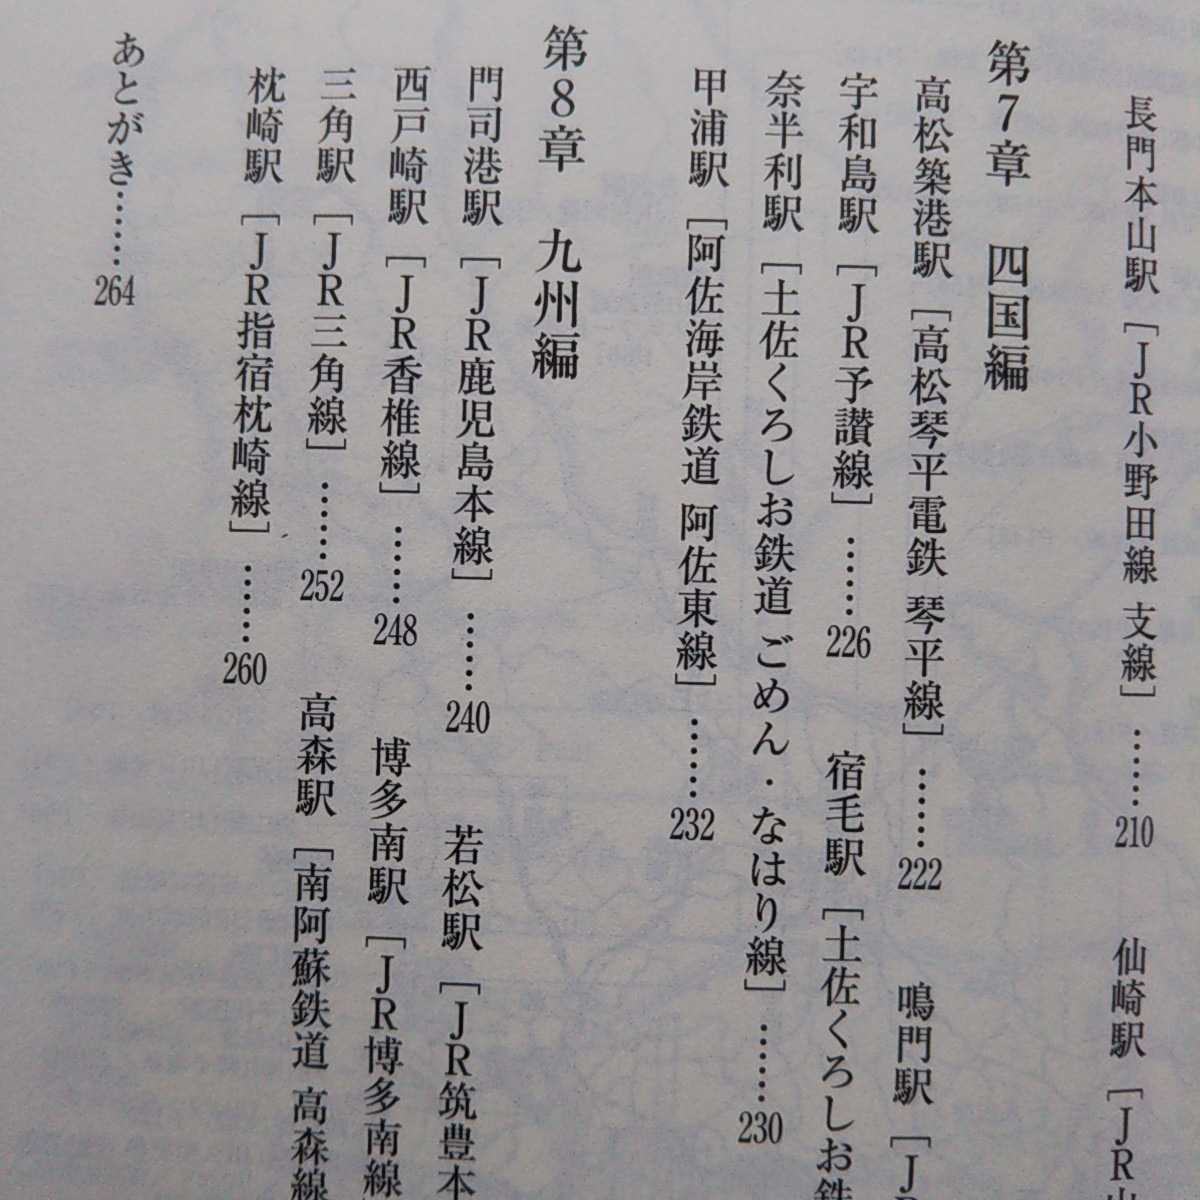 長門本山駅［JR小野田線 支線］……210　仙崎駅［JR
第7章　四国編
高松築港駅［高松琴平電鉄 琴平線］……222　鳴門駅［J
宇和島駅［JR予讃線］……226　宿毛駅［土佐くろしお鉄
奈半利駅［土佐くろしお鉄道 ごめん・なはり線］……230
甲浦駅［阿佐海岸鉄道 阿佐東線］……232
第8章　九州編
門司港駅［JR鹿児島本線］……240　若松駅［JR筑豊本
西戸崎駅［JR香椎線］……248　博多南駅［JR博多南線
三角駅［JR三角線］……252　高森駅［南阿蘇鉄道 高森線
枕崎駅［JR指宿枕崎線］……260
あとがき……264